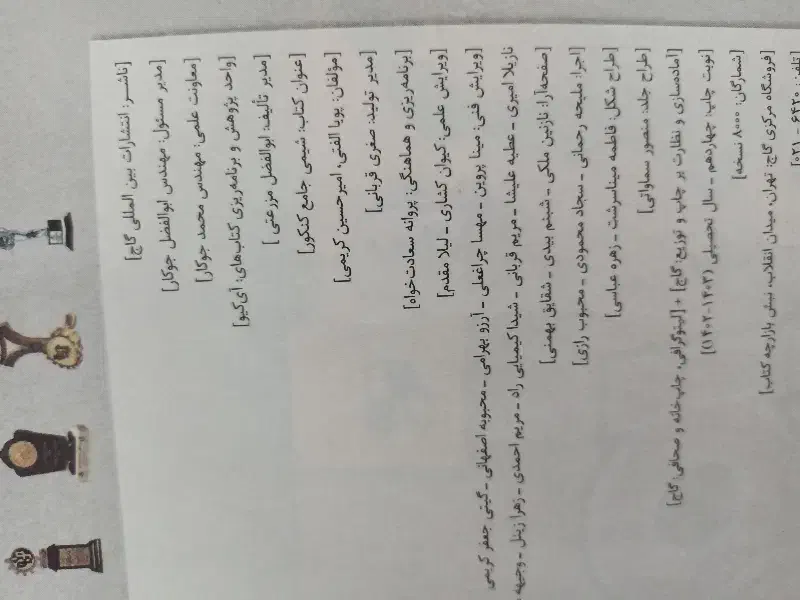 [ناشر: انتشارات بین المللی گاج]
[مدیر مسئول: مهندس ابوالفضل جوکار]
[معاونت علمی: مهندس محمد جوکار]
[واحد پژوهش و برنامه‌ریزی کتاب‌های: آی‌کیو]
[مدیر تألیف: ابوالفضل مزرعتی]
[عنوان کتاب: شیمی جامع کنکور]
[مؤلفان: پویا الفتی، امیرحسین کریمی]
[مدیر تولید: صغری قربانی]
[برنامه‌ریزی و هماهنگی: پروانه سعادت‌خواه]
[ویرایش علمی: کیوان کشاری - لیلا مقدم]
[ویرایش فنی: مینا پروین - مهسا چراغعلی - آرزو بهرامی - محبوبه اصفهانی - گیتی جعفر کریمی
نازیلا امیری - عطیه علیشا - مریم قربانی - شیدا کیمیایی راد - مریم احمدی - زهرا زینل - وجیهه
[صفحه‌آرا: نازنین ملکی - شبنم بیدی - شقایق بهمنی]
[اجرا: ملیحه رحمانی - سجاد محمودی - محبوب رازی]
[طراح شکل: فاطمه میناسرشت - زهره عباسی]
[طراح جلد: منصور سماواتی]
[آماده‌سازی و نظارت بر چاپ و توزیع: گاج] + [لیتوگرافی، چاپ‌خانه و صحافی: گاج]
[نوبت چاپ: چهاردهم - سال تحصیلی (۱۴۰۳-۱۴۰۲)]
[شمارگان: ۸۰۰۰ نسخه]
[فروشگاه مرکزی گاج: تهران، میدان انقلاب، نبش بازارچه کتاب]
[تلفن: ۶۴۲۰ - ۰۲۱]